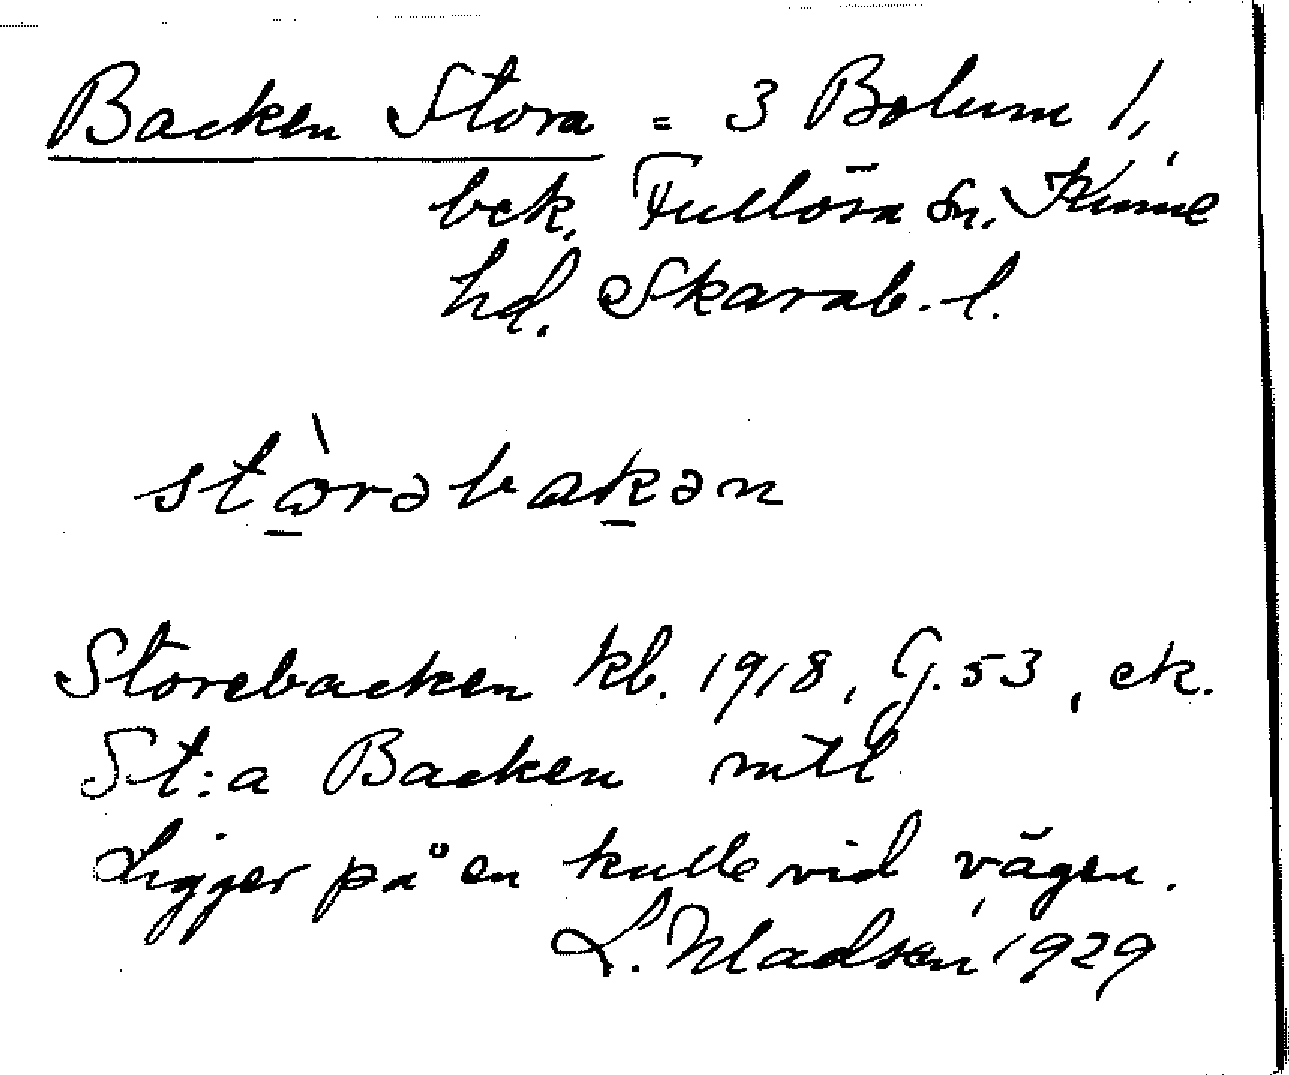 Backen Stora = 3 Bolum 1,
bek. Fullösa sn, Kinne
hd. Skarab. l.
stòrəbakən
Storebacken kb. 1918, G. 53, ek.
St:a Backen mtl
Ligger på en kulle vid vägen.
L. Madsén, 1929